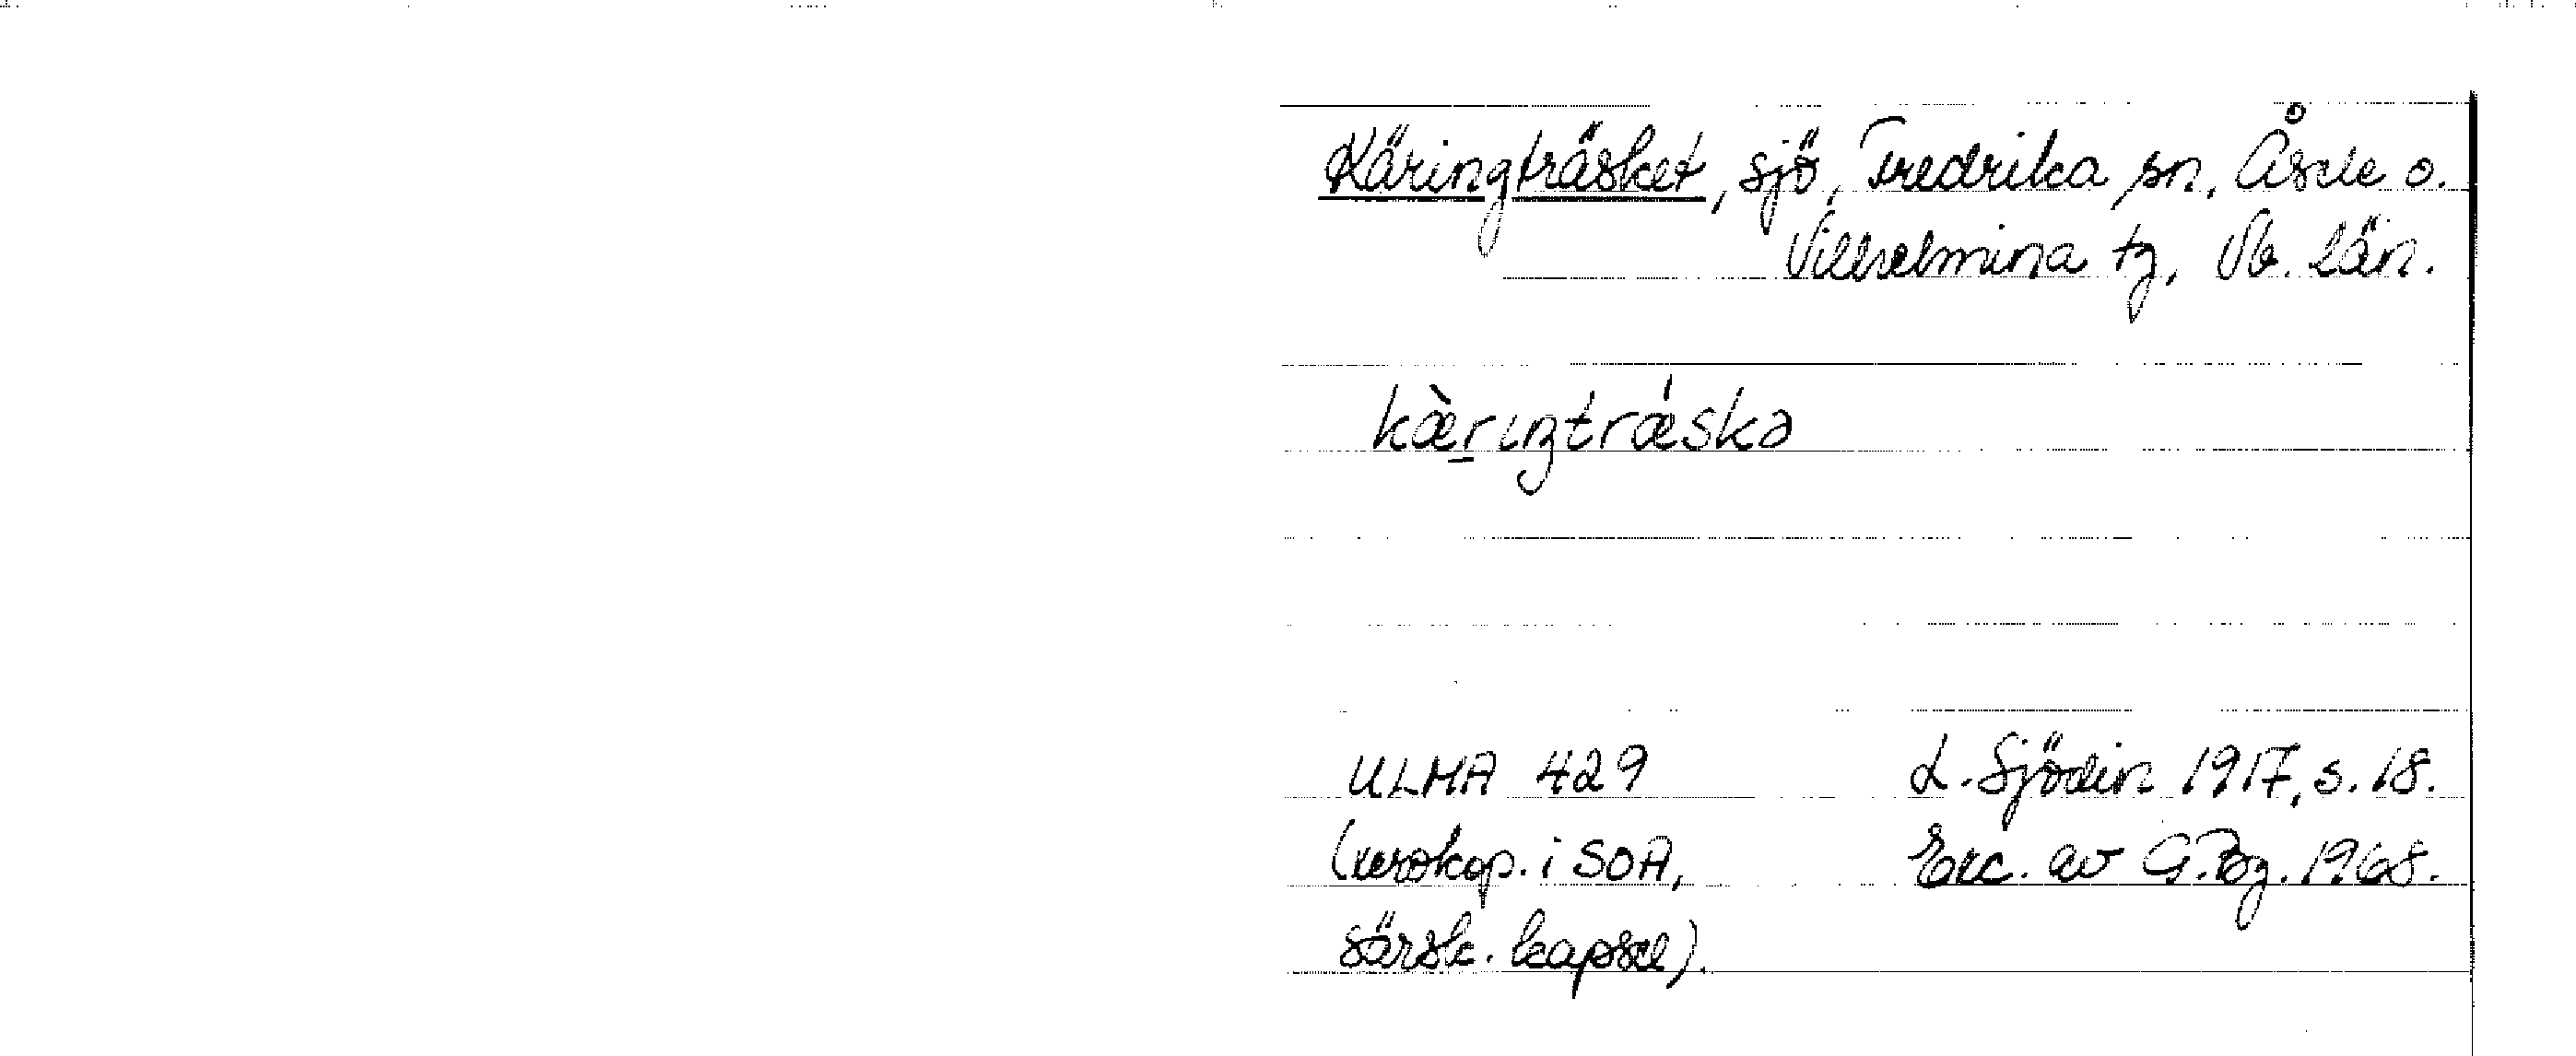 Käringträsket, sjö, Fredrika sn, Åsele o.
Vilhelmina tg, Vb. län.
kæ̀rıŋtrǽskə
ULMA 429
L. Sjödin 1917, s. 18.
(xerokop. i SOA,
Exc. av G. Bg. 1968.
särsk. kapsel).